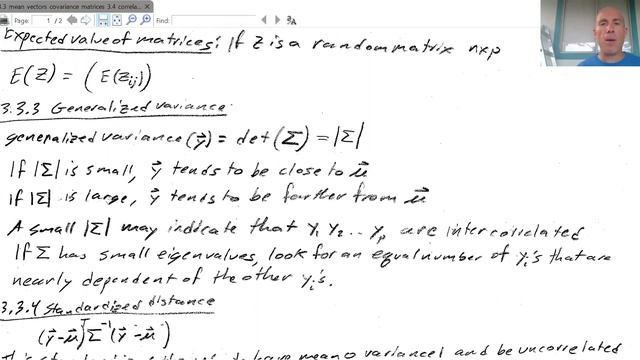 3.3 mean vectors covariance matrices 3.4 correla...
Page: 1 / 2
Expected value of matrices: If Z is a random matrix nxp
E(Z) = (E(z_ij))
3.3.3 Generalized variance
generalized variance (y⃗) = det(Σ) = |Σ|
If |Σ| is small, y⃗ tends to be close to μ⃗
if |Σ| is large, y⃗ tends to be farther from μ⃗
A small |Σ| may indicate that y₁ y₂ ... y_p are intercorrelated
If Σ has small eigenvalues, look for an equal number of y_i's that are
nearly dependent of the other y_i's.
3.3.4 Standardized distance
(y⃗-μ⃗)ᵀΣ⁻¹(y⃗-μ⃗)
have mean 0 variance 1 and be uncorrelated